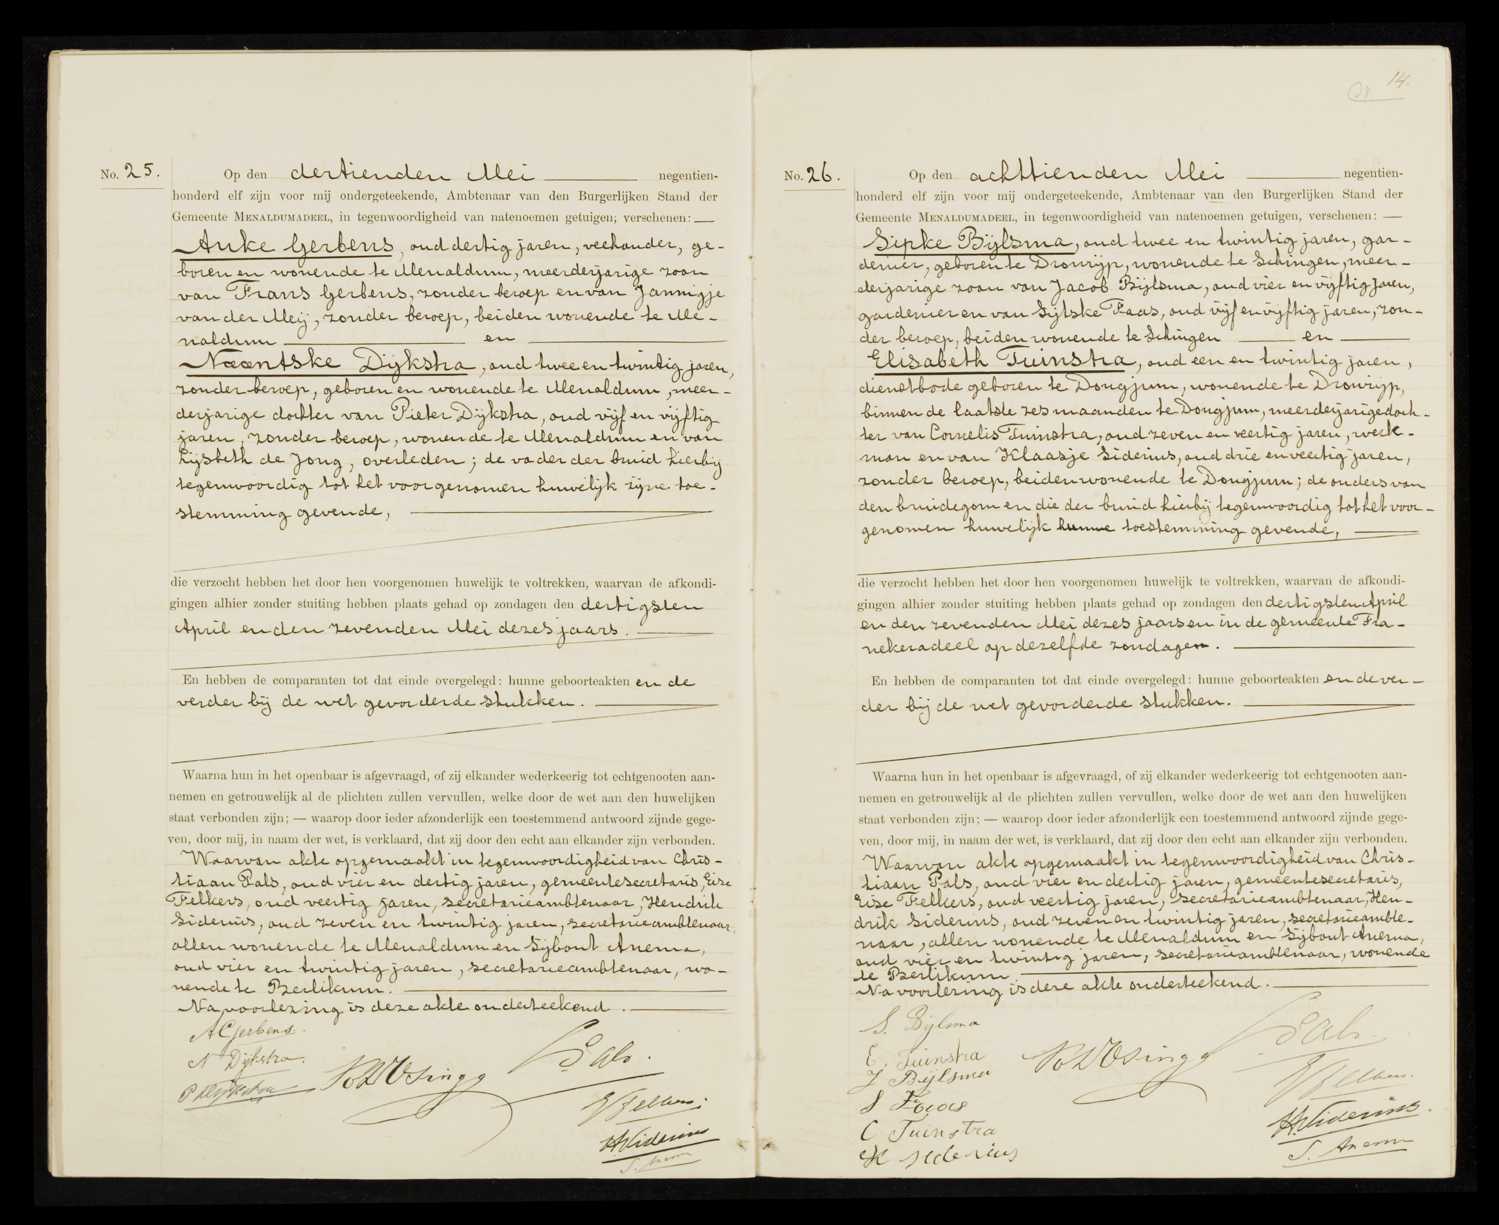 No. 25.
Op den dertienden Mei negentien-
honderd elf zijn voor mij ondergeteekende, Ambtenaar van den Burgerlijken Stand der
Gemeente MENALDUMADEEL, in tegenwoordigheid van natenoemen getuigen; verschenen:
Anke Gerbens, oud dertig jaren, veehouder, ge-
boren en wonende te Menaldum, meerderjarige zoon
van Frans Gerbens, zonder beroep en van Jannigje
van der Meij, zonder beroep, beiden wonende te Me-
naldum en
Naantske Dijkstra, oud twee en twintig jaren,
zonder beroep, geboren en wonende te Menaldum, meer-
derjarige dochter van Pieter Dijkstra, oud vijf en vijftig
jaren, zonder beroep, wonende te Menaldum en van
Lijsbeth de Jong, overleden; de vader der bruid hierbij
tegenwoordig tot het voorgenomen huwelijk zijne toe-
stemming gevende,
die verzocht hebben het door hen voorgenomen huwelijk te voltrekken, waarvan de afkondi-
gingen alhier zonder stuiting hebben plaats gehad op zondagen den dertigsten
April en den zevenden Mei dezes jaars.
En hebben de comparanten tot dat einde overgelegd: hunne geboorteakten en de
verder bij de wet gevorderde stukken.
Waarna hun in het openbaar is afgevraagd, of zij elkander wederkeerig tot echtgenooten aan-
nemen en getrouwelijk al de plichten zullen vervullen, welke door de wet aan den huwelijken
staat verbonden zijn; — waarop door ieder afzonderlijk een toestemmend antwoord zijnde gege-
ven, door mij, in naam der wet, is verklaard, dat zij door den echt aan elkander zijn verbonden.
Waarvan akte opgemaakt in tegenwoordigheid van Chris-
tiaan Pals, oud vier en dertig jaren, gemeentesecretaris, Eise
Felkers, oud veertig jaren, secretarieambtenaar, Hendrik
Siderius, oud zeven en twintig jaren, secretarieambtenaar,
allen wonende te Menaldum en Sijbout Anema,
oud vier en twintig jaren, secretarieambtenaar, wo-
nende te Berlikum.
Na voorlezing is deze akte onderteekend.
A Gerbens.
N Dijkstra.
P Dijkstra
Pals.
E Felkers.
H Siderius
S. Anema
14.
No. 26.
Op den achttienden Mei negentien-
honderd elf zijn voor mij ondergeteekende, Ambtenaar van den Burgerlijken Stand der
Gemeente MENALDUMADEEL, in tegenwoordigheid van natenoemen getuigen, verschenen:
Sipke Bijlsma, oud twee en twintig jaren, gar-
denier, geboren te Dronrijp, wonende te Schingen, meer-
derjarige zoon van Jacob Bijlsma, oud vier en vijftig jaren,
gardenier en van Sijtske Faas, oud vijf en vijftig jaren, zon-
der beroep, beiden wonende te Schingen en
Elisabeth Tuinstra, oud een en twintig jaren,
dienstbode geboren te Dongjum, wonende te Dronrijp,
binnen de laatste zes maanden te Dongjum, meerderjarige doch-
ter van Cornelis Tuinstra, oud zeven en veertig jaren, werk-
man en van Klaasje Siderius, oud drie en veertig jaren,
zonder beroep, beiden wonende te Dongjum; de ouders van
den bruidegom en die der bruid hierbij tegenwoordig tot het voor-
genomen huwelijk hunne toestemming gevende,
die verzocht hebben het door hen voorgenomen huwelijk te voltrekken, waarvan de afkondi-
gingen alhier zonder stuiting hebben plaats gehad op zondagen den dertigsten April
en den zevenden Mei dezes jaars en in de gemeente Fra-
nekeradeel op dezelfde zondagen.
En hebben de comparanten tot dat einde overgelegd: hunne geboorteakten en de ver-
der bij de wet gevorderde stukken.
Waarna hun in het openbaar is afgevraagd, of zij elkander wederkeerig tot echtgenooten aan-
nemen en getrouwelijk al de plichten zullen vervullen, welke door de wet aan den huwelijken
staat verbonden zijn; — waarop door ieder afzonderlijk een toestemmend antwoord zijnde gege-
ven, door mij, in naam der wet, is verklaard, dat zij door den echt aan elkander zijn verbonden.
Waarvan akte opgemaakt in tegenwoordigheid van Chris-
tiaan Pals, oud vier en dertig jaren, gemeentesecretaris,
Eise Felkers, oud veertig jaren, secretarieambtenaar, Hen-
drik Siderius, oud zeven en twintig jaren, secretarieambte-
naar, allen wonende te Menaldum en Sijbout Anema,
oud vier en twintig jaren, secretarieambtenaar, wonende
te Berlikum.
Na voorlezing is deze akte onderteekend.
S. Bijlsma
E. Tuinstra
J Bijlsma
S Faas
C Tuinstra
K Siderius
Pals
E Felkers.
H Siderius.
S. Anema